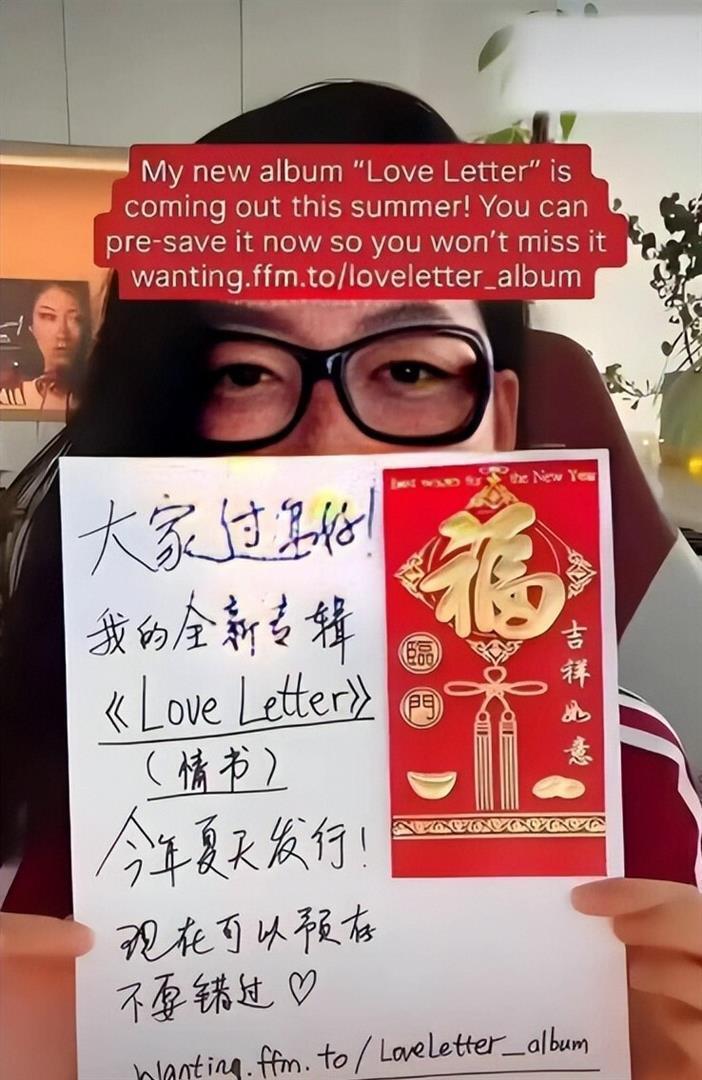 My new album “Love Letter” is
coming out this summer! You can
pre-save it now so you won’t miss it
wanting.ffm.to/loveletter_album
大家过年好!
我的全新专辑
《Love Letter》
(情书)
今年夏天发行!
现在可以预存
不要错过♡
wanting.ffm.to/LoveLetter_album
the New Year
福
臨
門
吉祥如意